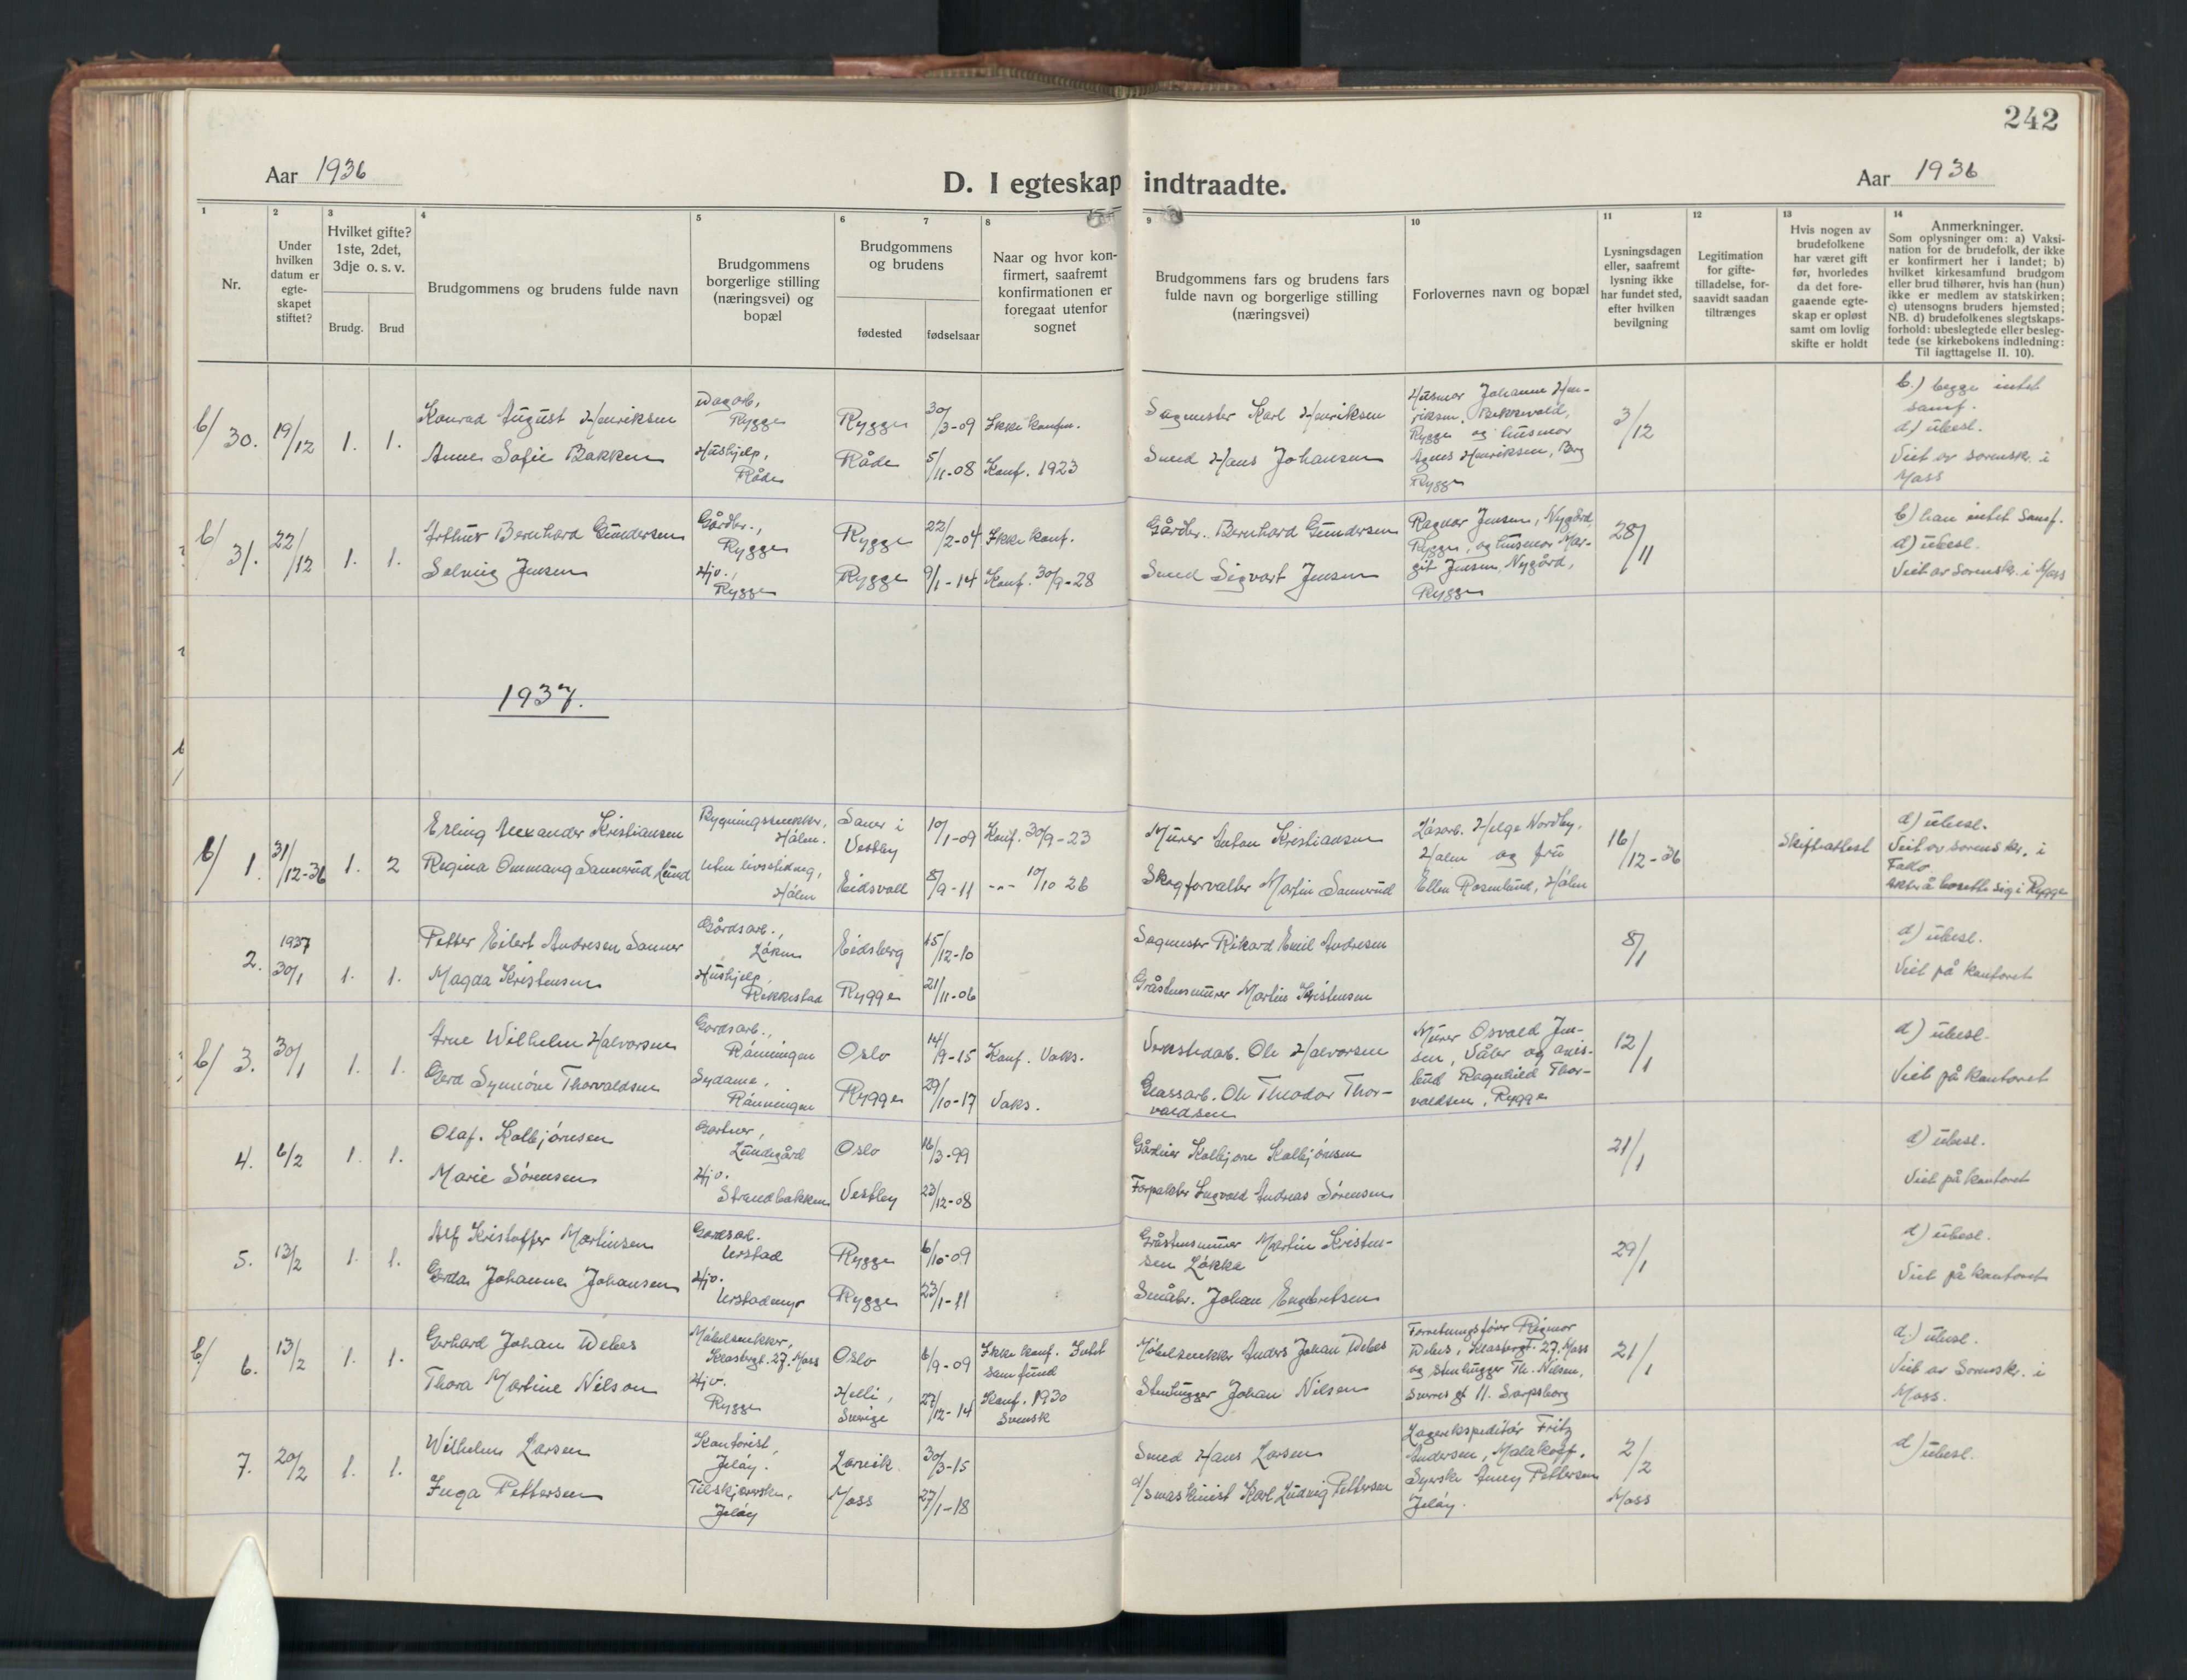 242
Aar 1936
D. I egteskap indtraadte.
Aar 1936
1
2
3
4
5
6
7
8
9
10
11
12
13
14
Nr.
Under
hvilken
datum er
egte-
skapet
stiftet?
Hvilket gifte?
1ste, 2det,
3dje o. s. v.
Brudg.
Brud
Brudgommens og brudens fulde navn
Brudgommens
borgerlige stilling
(næringsvei) og
bopæl
Brudgommens
og brudens
fødested
fødselsaar
Naar og hvor kon-
firmert, saafremt
konfirmationen er
foregaat utenfor
sognet
Brudgommens fars og brudens fars
fulde navn og borgerlige stilling
(næringsvei)
Forlovernes navn og bopæl
Lysningsdagen
eller, saafremt
lysning ikke
har fundet sted,
efter hvilken
bevilgning
Legitimation
for gifte-
tilladelse, for-
saavidt saadan
tiltrænges
Hvis nogen av
brudefolkene
har været gift
før, hvorledes
da det fore-
gaaende egte-
skap er opløst
samt om lovlig
skifte er holdt
Anmerkninger.
Som oplysninger om: a) Vaksi-
nation for de brudefolk, der ikke
er konfirmert her i landet; b)
hvilket kirkesamfund brudgom
eller brud tilhører, hvis han (hun)
ikke er medlem av statskirken;
c) utensogns bruders hjemsted;
NB. d) brudefolkenes slegtskaps-
forhold: ubeslegtede eller besleg-
tede (se kirkebokens indledning:
Til iagttagelse II. 10).
b/ 30.
19/12
1.
1.
Konrad August Henriksen
Anne Sofie Bakken
Dagarb.,
Rygge
Hushjelp,
Råde
Rygge
Råde
30/3-09
5/11-08
Ikke konfm.
Konf. 1923
Sagmester Karl Henriksen
Smed Hans Johansen
Husmor Johanne Hen-
riksen, Bekkevold,
Rygge og husmor
Agnes Henriksen, Berg
Rygge
3/12
b.) begge intet
samf.
d) ubesl.
Viet av sorenskr. i
Moss
b/ 31.
22/12
1.
1.
Arthur Bernhard Gundersen
Solveig Jensen
Gårdbr.,
Rygge
Hjv.,
Rygge
Rygge
Rygge
22/2-04
9/1-14
Ikke konf.
Konf. 30/9-28
Gårdbr. Bernhard Gundersen
Smed Sigvart Jensen
Ragnar Jensen, Nygård,
Rygge, og husmor Mar-
git Jensen, Nygård,
Rygge
28/11
b) han intet samf.
d) ubesl.
Viet av Sorenskr. i Moss
1937.
b/ 1.
31/12-36
1.
2
Erling Alexander Kristiansen
Regina Ommang Sannerud Lund
Bygningssnekker,
Hølen.
Uten livsstilling,
Hølen
Saner i
Vestby
Eidsvold
10/1-09
8/9-11
Konf. 30/9-23
-"- 10/10 26
Murer Anton Kristiansen
Skogforvalter Martin Sannerud
Løsarb. Helge Nordby,
Hølen og fru
Ellen Rosenlund, Hølen
16/12-36
Skifteattest
d) ubesl.
Viet av sorenskr. i
Follo.
akter å bosette sig i Rygge
2.
1937
30/1
1.
1.
Petter Eilert Andresen Sanner
Magda Kristensen
Gårdsarb.,
Løken
Hushjelp,
Rikkestad
Eidsberg
Rygge
15/12-10
21/11-06
Sagmester Rikard Emil Andresen
Gråstensmurer Martin Kristensen
8/1
d) ubesl.
Viet på kontoret
b/ 3.
30/1
1.
1.
Arne Wilhelm Halvorsen
Gerd Synnöve Thorvaldsen
Gårdsarb.,
Rønningen
Sydame,
Rønningen
Oslo
Rygge
14/9-15
29/10-17
Konf. Vaks.
Vaks.
Verkstedarb. Ole Halvorsen
Glassarb. Ole Theodor Thor-
valdsen
Murer Osvald Jen-
sen, Våler og avis-
bud Ragnhild Thor-
valdsen, Rygge
12/1
d) ubesl.
Viet på kontoret
4.
6/2
1.
1.
Olaf. Kolbjørnsen
Marie Sørensen
Gartner,
Lundegård
Hjv.
Strandbakken
Oslo
Vestby
16/3-99
23/12-08
Gårdeier Kolbjørn Kolbjørnsen
Forpakter Ingvald Andreas Sørensen
21/1
d) ubesl.
Viet på kontoret
5.
13/2
1.
1.
Alf Kristoffer Martinsen
Gerda Johanne Johansen
Gårdsarb.
Urstad
Hjv.
Urstadmyr
Rygge
Rygge
6/10-09
23/1-11
Gråstensmurer Martin Kristen-
sen Løkke
Småbr. Johan Engebretsen
29/1
d) ubesl.
Viet på kontoret
b/ 6.
13/2
1.
1.
Gerhard Johan Debes
Thora Martine Nilson
Møbelsnekker,
Klosbergt. 27. Moss
Hjv.
Rygge
Oslo
Helli,
Sverige
6/9-09
27/12-14
Ikke konf. Intet
samfund
Konf. 1930
Svensk
Møbelsnekker Anders Johan Debes
Stenhugger Johan Nilsen
Forretningsfører Rigmor
Debes, Klosbergt. 27. Moss
og Stenhugger Th. Nilsen,
Sverres gt 11. Sarpsborg
21/1
d.) ubesl.
Viet av Sorenskr. i
Moss.
7.
20/2
1.
1.
Wilhelm Larsen
Inga Pettersen
Kontorist,
Jeløy.
Tilskjærerske,
Jeløy
Larvik.
Moss
30/3-15
27/1-18
Smed Hans Larsen
d/smaskinist Karl Ludvig Pettersen
Lagerekspeditør Fritz
Andersen, Malakoff.
Syerske Anny Pettersen
Jeløy.
2/2
Moss
d) ubesl.